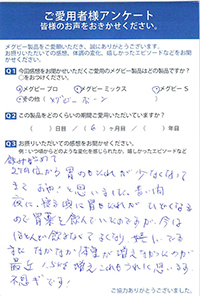 ご愛用者様アンケート
皆様のお声をおきかせください。
メグビー製品をご愛顧いただき、誠にありがとうございます。
お摂りいただいての感想、体調の変化、嬉しかったエピソードなどをお聞かせください。
Q1 今回感想をお聞かせいただくご愛用のメグビー製品はどの製品ですか?
○をつけください。
メグビー プロ メグビー ミックス メグビー S
その他( メグビー )
Q2 この製品をどのくらいの期間ご愛用いただいていますか?
( )日目 / ( 6 )ヶ月目 / ( )年目
Q3 お摂りいただいての感想をお聞かせください。
例:いつ頃からどのような変化を感じられたか、嬉しかったエピソードなど
飲み始めて
2ヶ月位から胃のもたれが少なくなって
きて おや?と思いました。長い間
夜に 胃のもたれが ひどくなる
ので胃薬を飲んでいたのですが、今は
ほとんど飲まなくてよくなり
なかなか体重が増えなかったのが
最近 増え これもうれしく思います。
不思議です!
ご協力ありがとうございました。